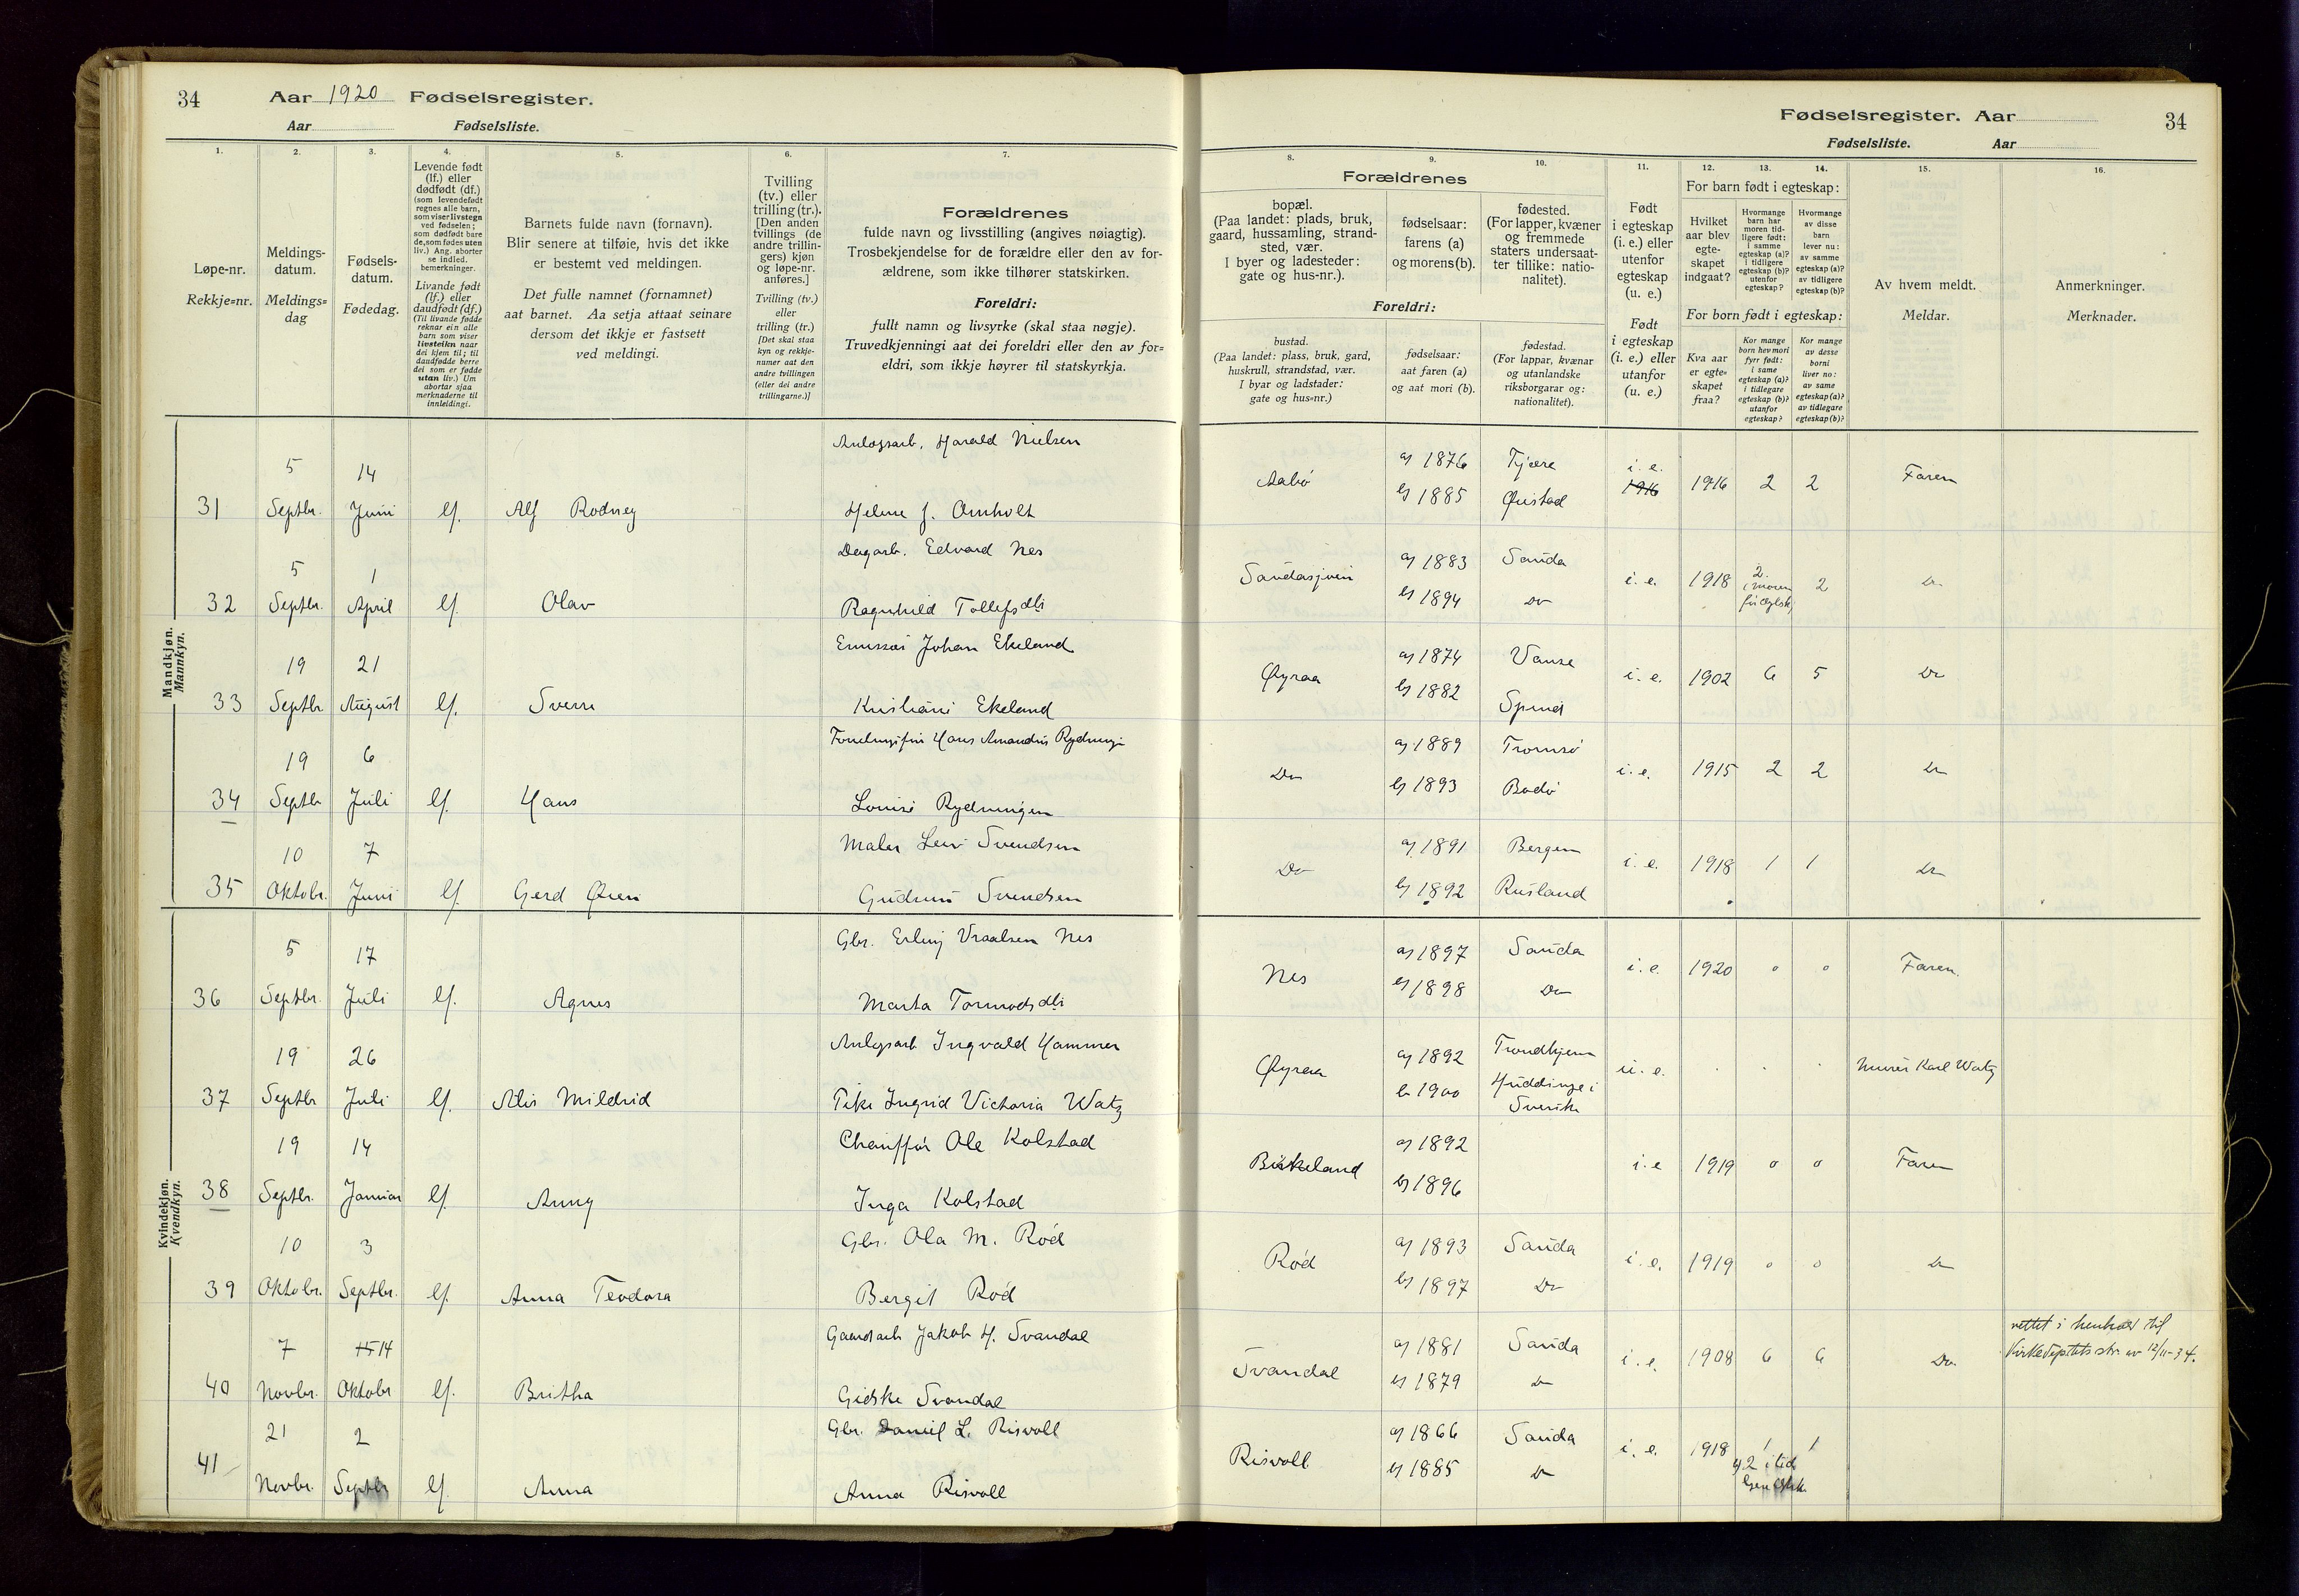 34 Aar 1920 Fødselsregister.
Aar Fødselsliste.
Fødselsregister. Aar 34
Fødselsliste. Aar
1. 2. 3. 4. 5. 6. 7. 8. 9. 10. 11. 12. 13. 14. 15. 16.
Løpe-nr.
Rekkje=nr.
Meldings-
datum.
Meldings=
dag
Fødsels-
datum.
Fødedag.
Levende født
(lf.) eller
dødfødt (df.)
(som levendefødt
regnes alle barn,
som viser livstegn
ved fødselen;
som dødfødt bare
de, som fødes uten
liv.) Ang. aborter
se indled.
bemerkninger.
Livande født
(lf.) eller
daudfødt (df.)
(Til livande fødde
reknar ein alle
barn som viser
livsteikn naar
dei kjem til; til
daudfødde berre
dei som er fødde
utan liv.) Um
abortar sjaa
merknaderne til
innleidingi.
Barnets fulde navn (fornavn).
Blir senere at tilføie, hvis det ikke
er bestemt ved meldingen.
Det fulle namnet (fornamnet)
aat barnet. Aa setja attaat seinare
dersom det ikkje er fastsett
ved meldingi.
Tvilling
(tv.) eller
trilling (tr.).
[Den anden
tvillings (de
andre trillin-
gers) kjøn
og løpe-nr.
anføres.]
Tvilling (tv.)
eller
trilling (tr.)
[Det skal staa
kyn og rekkje-
numer aat den
andre tvillingen
(eller dei andre
trillingarne.)]
Forældrenes
fulde navn og livsstilling (angives nøiagtig).
Trosbekjendelse for de forældre eller den av for-
ældrene, som ikke tilhører statskirken.
Foreldri:
fullt namn og livsyrke (skal staa nøgje).
Truvedkjenningi aat dei foreldri eller den av for=
eldri, som ikkje høyrer til statskyrkja.
Forældrenes
bopæl.
(Paa landet: plads, bruk,
gaard, hussamling, strand-
sted, vær.
I byer og ladesteder:
gate og hus-nr.).
fødselsaar:
farens (a)
og morens (b).
fødested.
(For lapper, kvæner
og fremmede
staters undersaat-
ter tillike: natio-
nalitet).
Foreldri:
bustad.
(Paa landet: plass, bruk, gard,
huskrull, strandstad, vær.
I byar og ladstader:
gate og hus=nr.)
fødselsaar:
aat faren (a)
og aat mori (b).
fødestad.
(For lappar, kvænar
og utanlandske
riksborgarar og:
nationalitet).
Født
i egteskap
(i. e.) eller
utenfor
egteskap
(u. e.)
Født
i egteskap
(i. e.) eller
utanfor
(u. e.)
For barn født i egteskap:
Hvilket
aar blev
egte-
skapet
indgaat?
Hvormange
barn har
moren tid-
ligere født:
i samme
egteskap (a)?
i tidligere
egteskap (b)?
utenfor
egteskap?
Hvormange
av disse
barn
lever nu:
av samme
egteskap (a)?
av tidligere
egteskap (b)?
For born født i egteskap:
Kva aar
er egte=
skapet
fraa?
Kor mange
born hev mori
fyrr født:
i same
egteskap (a)?
i tidlegare
egteskap (b)?
utanfor
egteskap?
Kor mange
av desse
borni
liver no:
av same
egteskap (a)?
av tidlegare
egteskap (b)?
Av hvem meldt.
Meldar.
Anmerkninger.
Merknader.
Mandkjøn.
Mannkyn.
Anlægsarb. Harald Nielsen
5 14 Aabø a) 1876 Tjøre i. e. 1916 2 2 Faren
31 Septbr. Juni lf. Alf Rodney Helene J. Omholt b) 1885 Øiestad 1916
Dagarb. Edvard Nes
5 1 Saudasjøen a) 1883 Sauda i. e. 1918 2 2 Do
32 Septbr. April lf. Olav Ragnhild Tollefsdtr b) 1894 Do
Johan Ekeland
19 21 Øyraa a) 1874 Vanse i. e. 1902 6 5 Do
33 Septbr August lf. Sverre Kristiane Ekeland b) 1882 Spind
Hans Amandus Rydningen
19 6 Do a) 1889 Tromsø i. e. 1915 2 2 Do
34 Septbr Juli lf. Hans Louise Rydningen b) 1893 Bodø
Maler Leiv Svendsen
10 7 Do a) 1891 Bergen i. e. 1918 1 1 Do
35 Oktobr. Juni lf. Gerd Gudrun Svendsen b) 1892 Rusland
Kvindekjøn.
Kvendkyn.
Gbr. Erling Vraalsen Nes
5 17 Nes a) 1897 Sauda i. e. 1920 0 0 Faren.
36 Septbr. Juli lf. Agnes Marta Tormodsdtr b) 1898 Do
Anlegsarb Ingvald Hammer
19 26 Øyraa a) 1892 Trondhjem u. e. Murer Karl Watz
37 Septbr Juli lf. Alis Mildrid Pike Ingrid Victoria Watz b 1900 Huddinge i
Sverike
Chauffør Ole Kolstad
19 14 Birkeland a) 1892 i. e 1919 0 0 Faren
38 Septbr. Januar lf. Anny Inga Kolstad b) 1896
Gbr. Ola M. Rød
10 3 Rød a) 1893 Sauda i. e. 1919 0 0 Do
39 Oktobr. Septbr. lf. Anna Teodora Bergit Rød b) 1897 Do
Gaardsarb Jakob H. Svandal rettet i henhold til
7 15 14 Svandal a) 1881 Sauda i. e. 1908 6 6 Do. Kirkedeptets skr. av 12/11-34.
40 Novbr. Oktobr lf. Britha Gidske Svandal b) 1879 Do
Gbr. Daniel L. Risvoll
21 2 Risvoll a) 1866 Sauda i. e. 1918 1 1
41 Novbr. Septbr lf. Anna Anna Risvoll b) 1885 Do